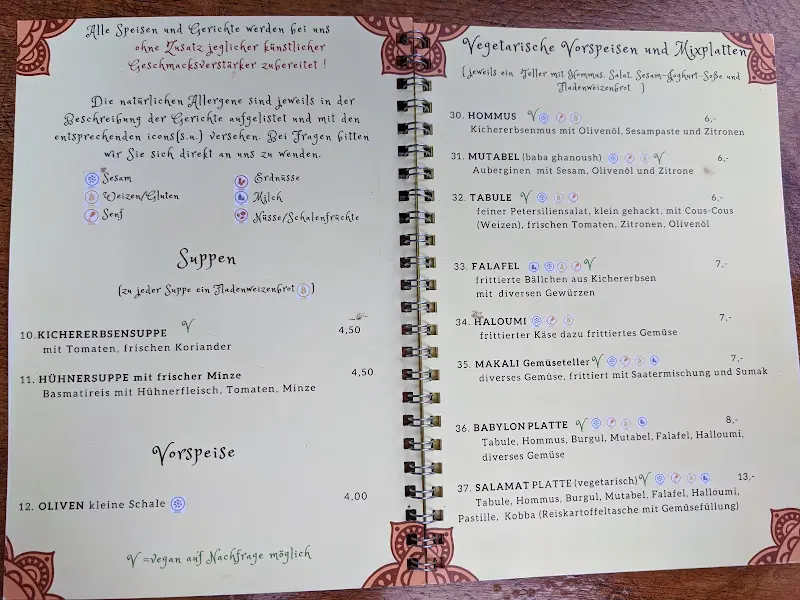 Alle Speisen und Gerichte werden bei uns
ohne Zusatz jeglicher künstlicher
Geschmacksverstärker zubereitet !
Die natürlichen Allergene sind jeweils in der
Beschreibung der Gerichte aufgelistet und mit den
entsprechenden icons(s.u.) versehen. Bei Fragen bitten
wir Sie sich direkt an uns zu wenden.
Sesam
Weizen/Gluten
Senf
Erdnüsse
Milch
Nüsse/Schalenfrüchte
Suppen
(zu jeder Suppe ein Fladenweizenbrot )
10.KICHERERBSENSUPPE V 4,50
mit Tomaten, frischen Koriander
11. HÜHNERSUPPE mit frischer Minze 4,50
Basmatireis mit Hühnerfleisch, Tomaten, Minze
Vorspeise
12. OLIVEN kleine Schale 4,00
V =vegan auf Nachfrage möglich
Vegetarische Vorspeisen und Mixplatten
(jeweils ein Teller mit Hommus, Salat, Sesam-Joghurt-Soße und
Fladenweizenbrot )
30. HOMMUS V 6,-
Kichererbsenmus mit Olivenöl, Sesampaste und Zitronen
31. MUTABEL (baba ghanoush) V 6,-
Auberginen mit Sesam, Olivenöl und Zitrone
32. TABULE V 6,-
feiner Petersiliensalat, klein gehackt, mit Cous-Cous
(Weizen), frischen Tomaten, Zitronen, Olivenöl
33. FALAFEL V 7,-
frittierte Bällchen aus Kichererbsen
mit diversen Gewürzen
34. HALOUMI 7,-
frittierter Käse dazu frittiertes Gemüse
35. MAKALI Gemüseteller V 7,-
diverses Gemüse, frittiert mit Saatermischung und Sumak
36. BABYLON PLATTE V 8,-
Tabule, Hommus, Burgul, Mutabel, Falafel, Halloumi,
diverses Gemüse
37. SALAMAT PLATTE (vegetarisch) V 13,-
Tabule, Hommus, Burgul, Mutabel, Falafel, Halloumi,
Pastille, Kobba (Reiskartoffeltasche mit Gemüsefüllung)